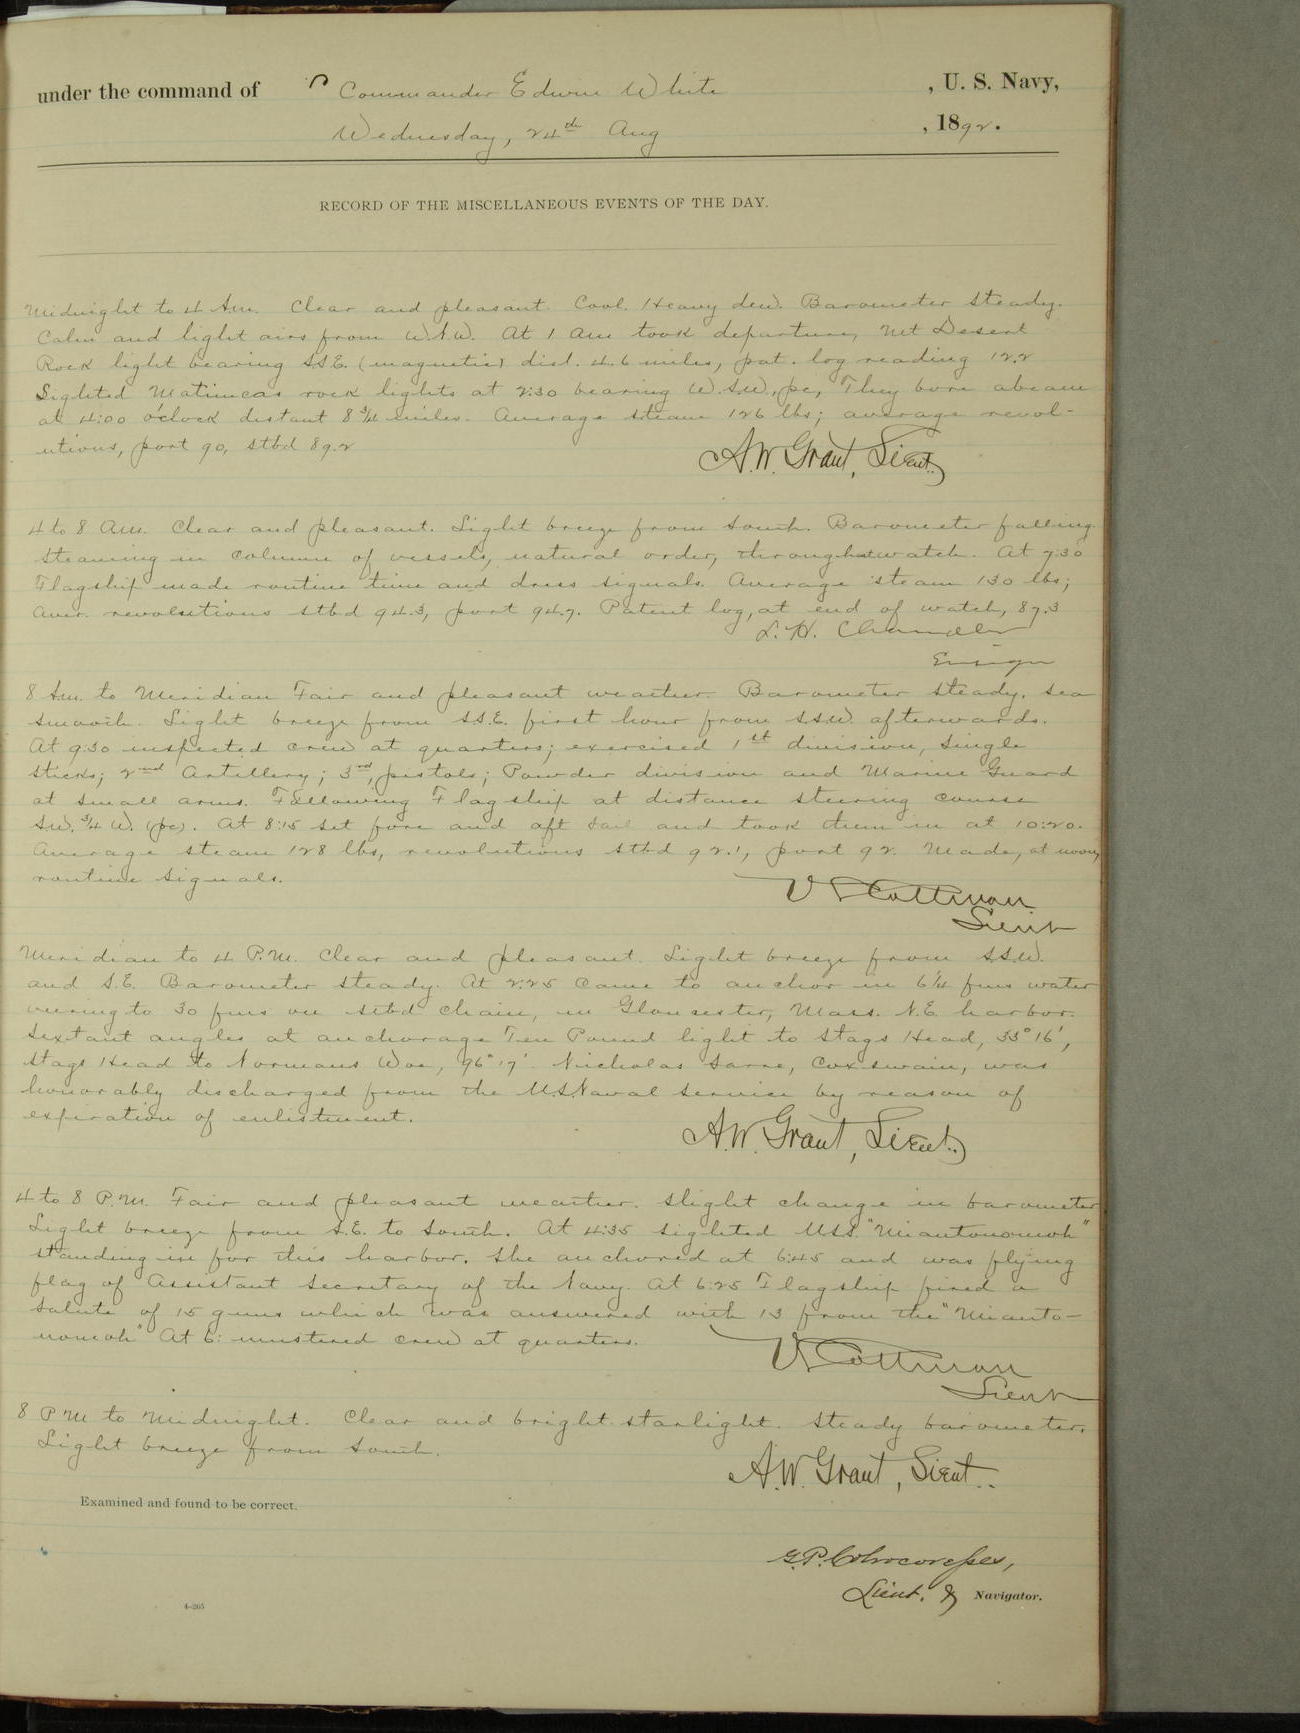 under the command of Commander Edwin White , U. S. Navy,
Wednesday, 24th Aug , 1892.
RECORD OF THE MISCELLANEOUS EVENTS OF THE DAY.
Midnight to 4 Am. Clear and pleasant. Cool. Heavy dew. Barometer steady.
Calm and light airs from W.N.W. At 1 am took departure, Mt Desert
Rock light bearing S.S.E. (magnetic) dist. 4.6 miles, pat. log reading 12.2
Sighted Matinicas rock lights at 2:30 bearing W.S.W., pc, They bore abeam
at 4:00 o'clock distant 8 3/4 miles. Average steam 126 lbs; average revol-
utions, port 90, stbd 89.2
A.W. Grant, Lieut.
4 to 8 Am. Clear and pleasant. Light breeze from South. Barometer falling.
Steaming in column of vessels, natural order, throughout watch. At 7:30
Flagship made routine time and dress signals. Average steam 130 lbs;
Aver. revolutions stbd 94.3, port 94.7. Patent log, at end of watch, 87.3
L. H. Chandler
Ensign
8 Am. to Meridian Fair and pleasant weather. Barometer steady. Sea
smooth. Light breeze from S.S.E. first hour from S.S.W. afterwards.
At 9:30 inspected crew at quarters; exercised 1st division, single
sticks; 2nd Artillery; 3rd, pistols; Powder division and Marine Guard
at small arms. Following Flagship at distance steering course
S.W. 3/4 W. (pc). At 8:15 set fore and aft sail and took them in at 10:20.
Average steam 128 lbs, revolutions stbd 92.1, port 92. Made, at noon,
routine signals.
V Cottman
Lieut
Meridian to 4 P.M. Clear and pleasant. Light breeze from S.S.W.
and S.E. Barometer steady. At 2:25 came to anchor in 6 1/4 fms water
veering to 30 fms on stbd chain, in Gloucester, Mass. N.E. harbor.
Sextant angles at anchorage Ten Pound light to Stags Head, 33° 16',
Stags Head to Normans Woe, 96° 17'. Nicholas Sarre, Coxswain, was
honorably discharged from the U.S. Naval Service by reason of
expiration of enlistment.
A.W. Grant, Lieut.
4 to 8 P.M. Fair and pleasant weather. Slight change in barometer
Light breeze from S.E. to South. At 4:35 sighted U.S.S. "Miantonomoh"
standing in for this harbor. She anchored at 6:45 and was flying
flag of Assistant Secretary of the Navy. At 6:25 Flagship fired a
salute of 15 guns which was answered with 13 from the "Mianto-
nomoh" At 6: mustered crew at quarters.
V Cottman
Lieut
8 P M to Midnight. Clear and bright starlight. Steady barometer.
Light breeze from South.
A.W. Grant, Lieut.
Examined and found to be correct.
G.P. Colvocoresses,
Lieut. & Navigator.
4–205